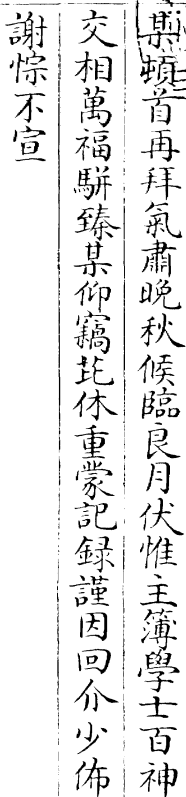 某頓首再拜氣肅晚秋候臨良月伏惟主簿學士百神
交相萬福駢臻某仰竊芘休重蒙記録謹因回介少佈
謝悰不宣